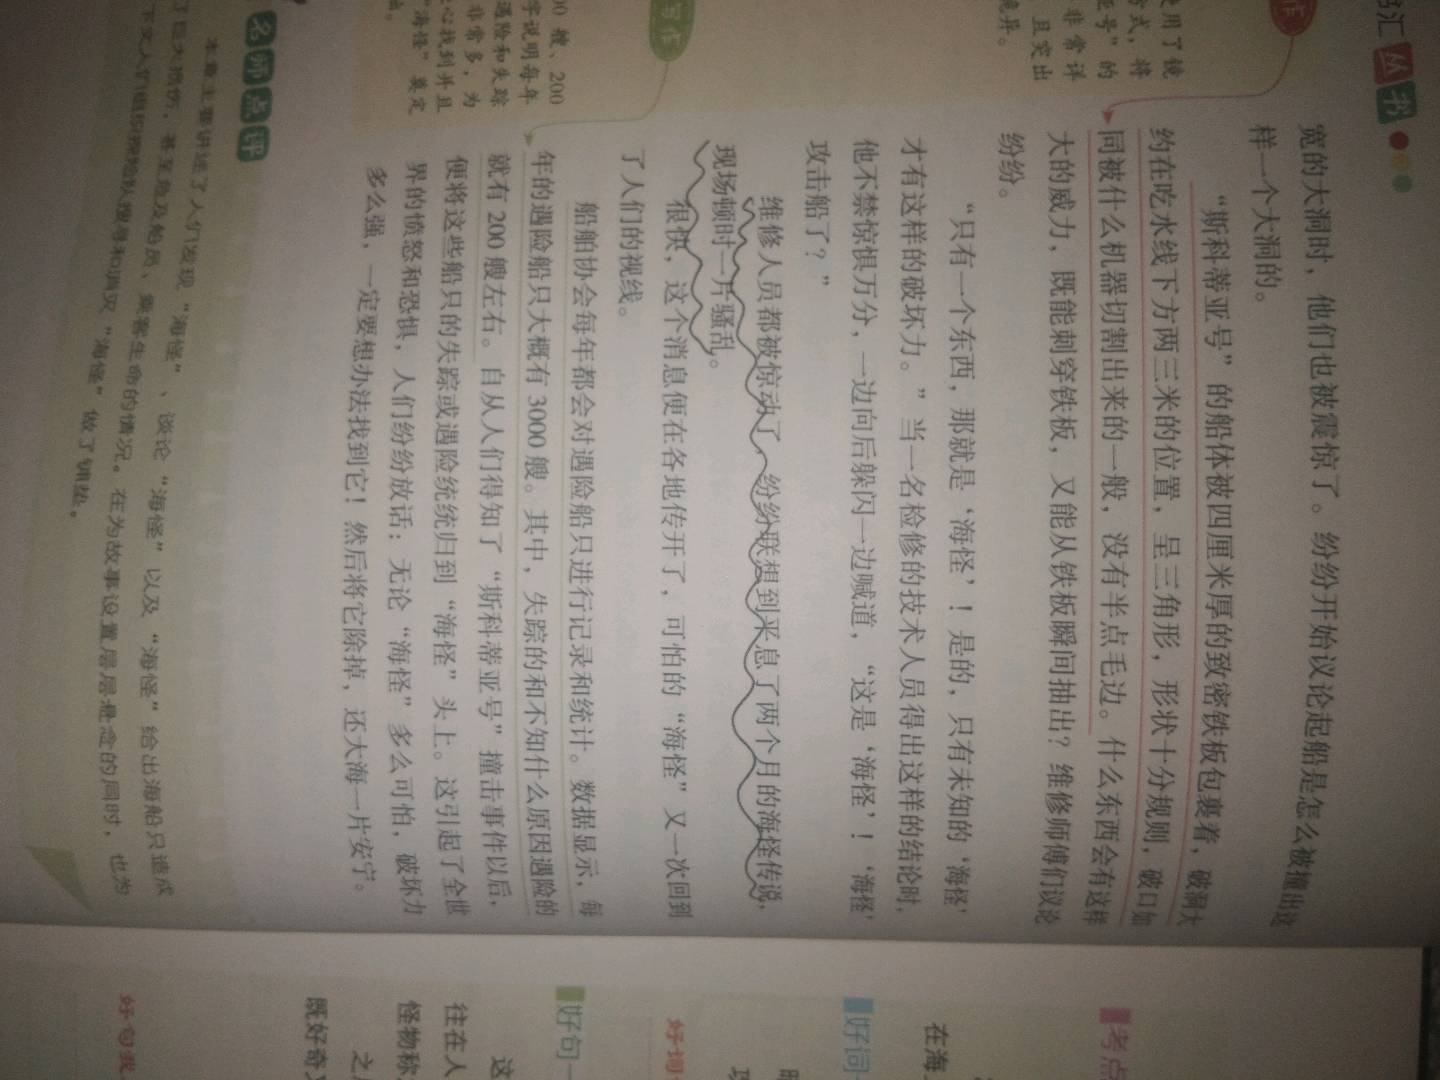 丛书
宽的大洞时，他们也被震惊了。纷纷开始议论起船是怎么被撞出这
样一个大洞的。
“斯科蒂亚号”的船体被四厘米厚的致密铁板包裹着，破洞大
约在吃水线下方两三米的位置，呈三角形，形状十分规则，破口如
同被什么机器切割出来的一般，没有半点毛边。什么东西会有这样
大的威力，既能刺穿铁板，又能从铁板瞬间抽出？维修师傅们议论
纷纷。
“只有一个东西，那就是‘海怪’！是的，只有未知的‘海怪’
才有这样的破坏力。”当一名检修的技术人员得出这样的结论时，
他不禁惊惧万分，一边向后躲闪一边喊道，“这是‘海怪’！‘海怪’
攻击船了？”
维修人员都被惊动了，纷纷联想到平息了两个月的海怪传说，
现场顿时一片骚乱。
很快，这个消息便在各地传开了，可怕的“海怪”又一次回到
了人们的视线。
船舶协会每年都会对遇险船只进行记录和统计。数据显示，每
年的遇险船只大概有3000艘。其中，失踪的和不知什么原因遇险的
就有200艘左右。自从人们得知了“斯科蒂亚号”撞击事件以后，
便将这些船只的失踪或遇险统统归到“海怪”头上。这引起了全世
界的愤怒和恐惧，人们纷纷放话：无论“海怪”多么可怕，破坏力
多么强，一定要想办法找到它！然后将它除掉，还大海一片安宁。
使用了
方式，将
亚号”的
非常详
且突出
诡异。
写作
00艘、200
字说明每年
遇险和失踪
非常多，为
心找到并且
“海怪”奠定
名师点评
本章主要讲述了人们发现“海怪”、谈论“海怪”以及“海怪”给出海船只造成
了巨大损伤，甚至危及船员、乘客生命的情况。在为故事设置层层悬念的同时，也为
下文人们组织探险队搜寻和消灭“海怪”做了铺垫。
考点
在海
好词
好词
好句
这
往在人
怪物称
之
既好奇
好句我